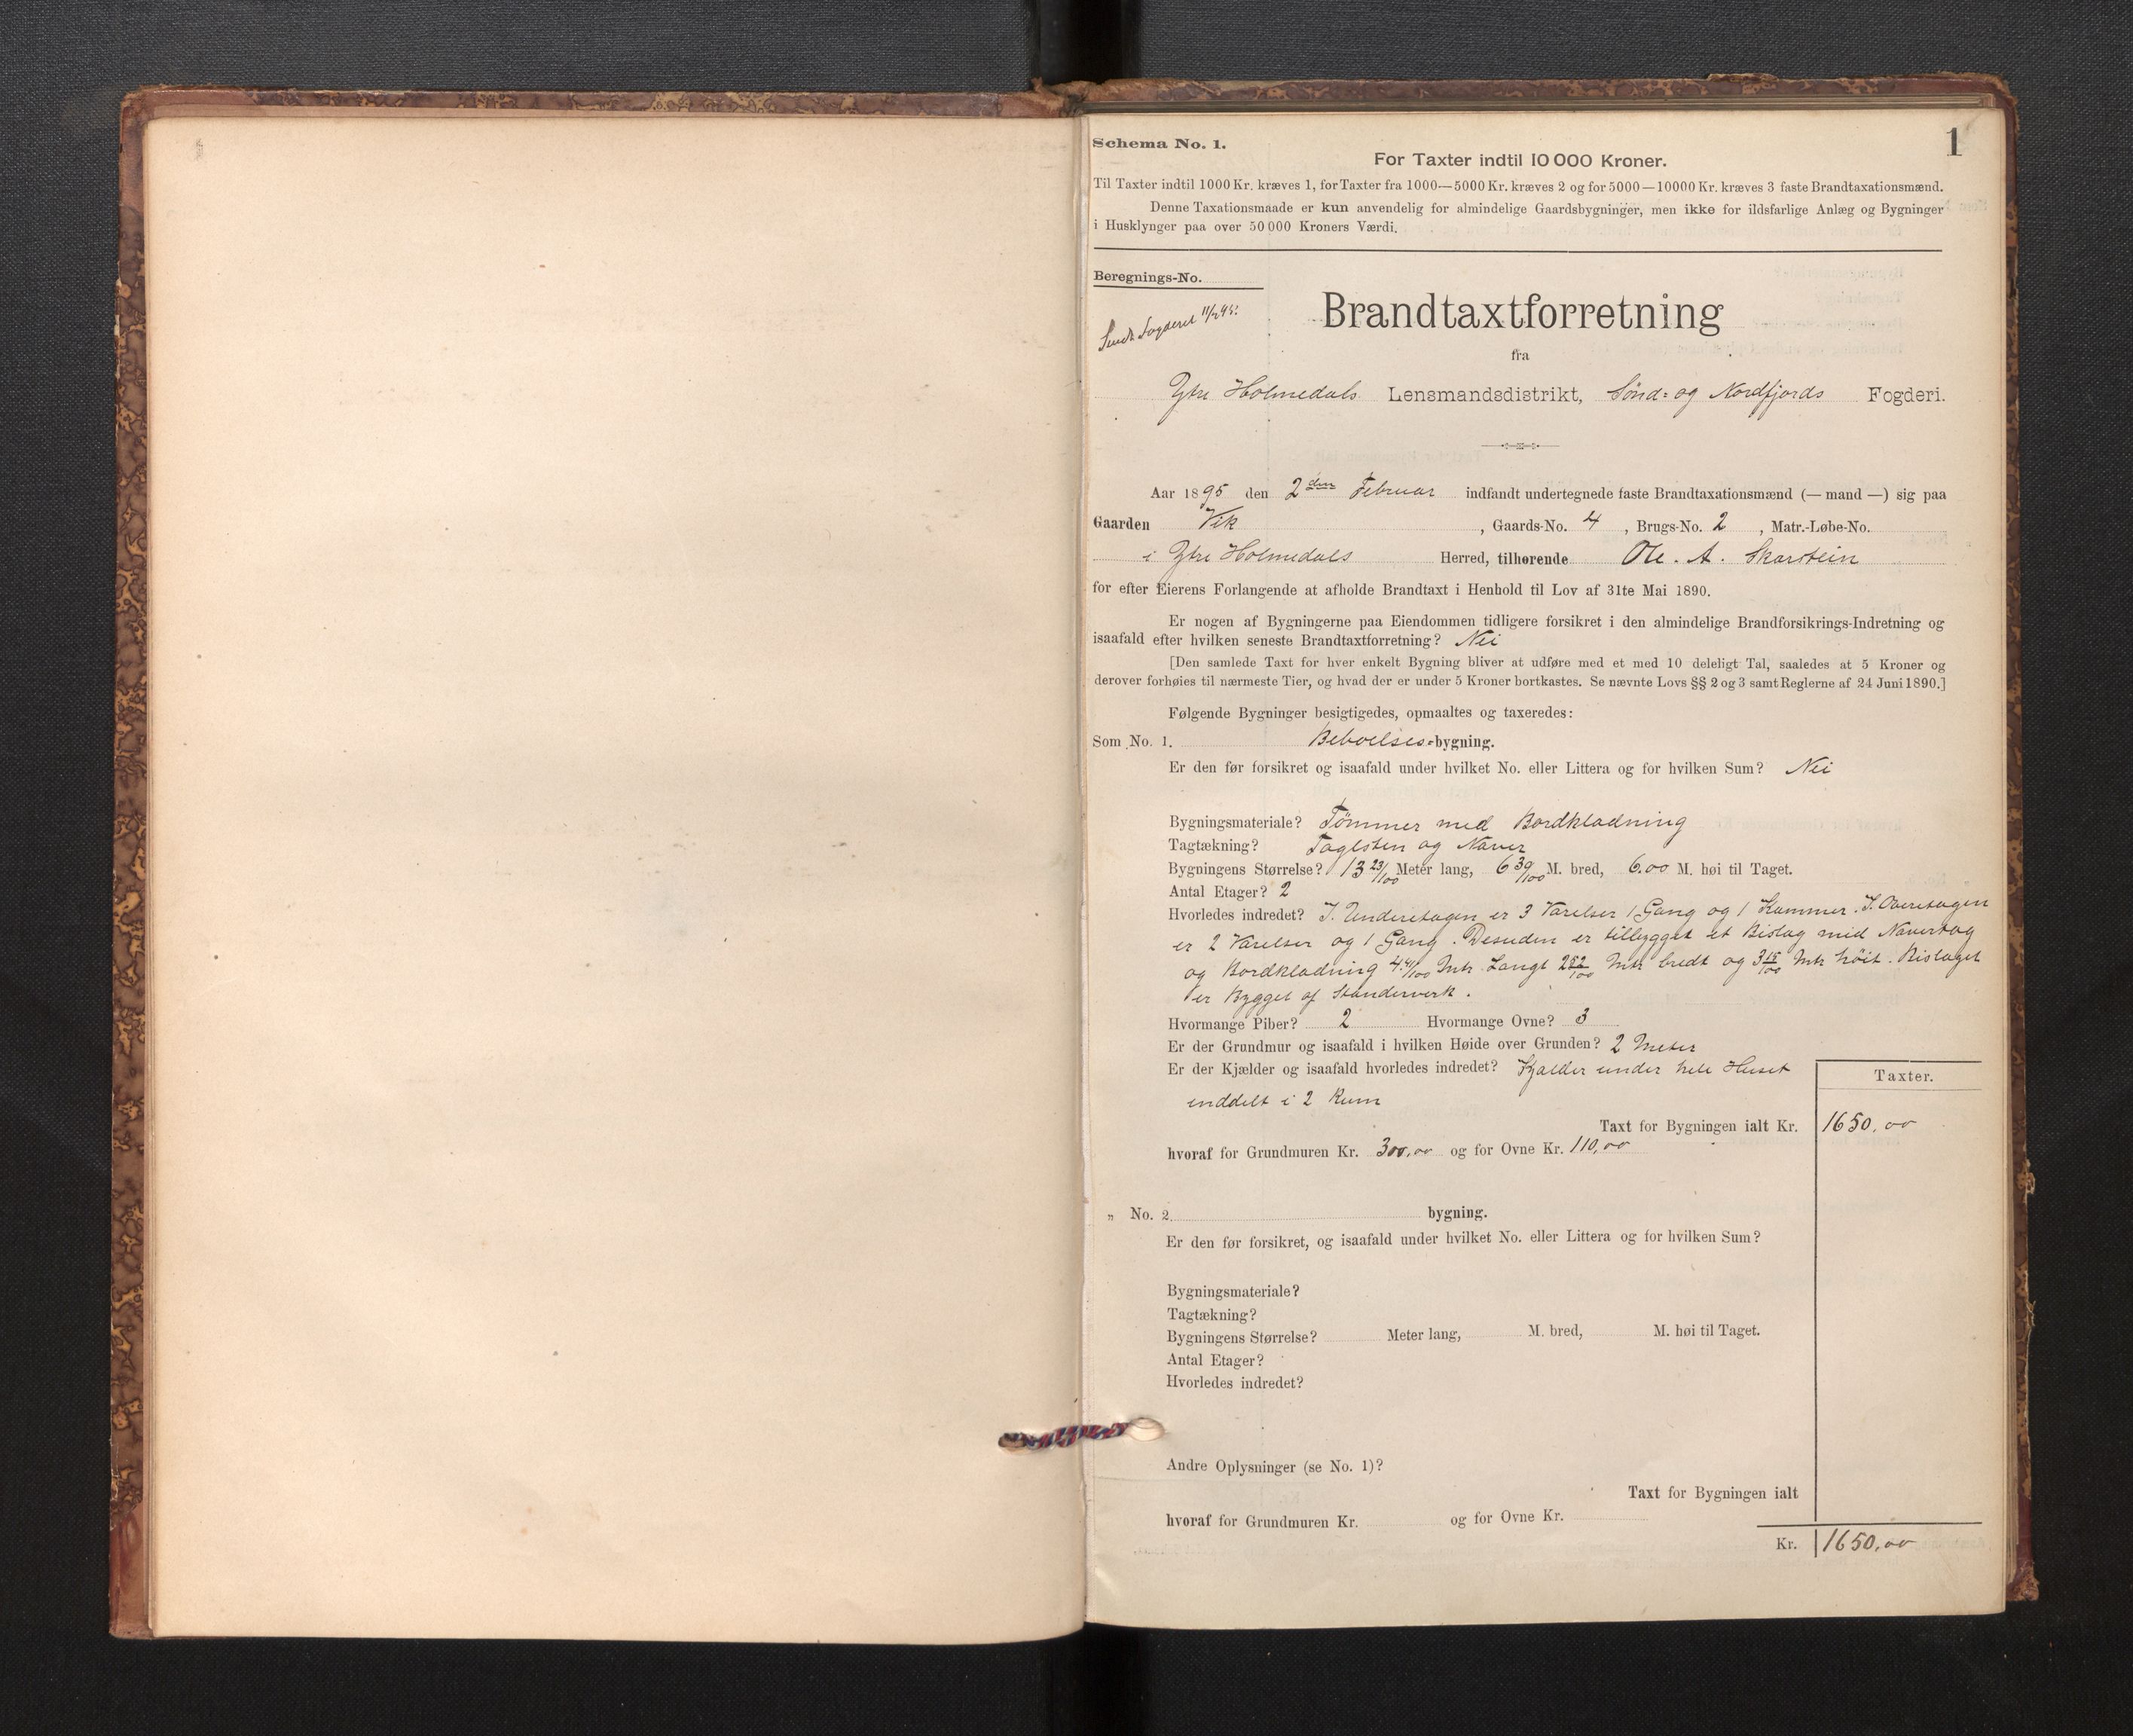 Schema No. 1.
1
For Taxter indtil 10 000 Kroner.
Til Taxter indtil 1000 Kr. kræves 1, for Taxter fra 1000—5000 Kr. kræves 2 og for 5000—10000 Kr. kræves 3 faste Brandtaxationsmænd.
Denne Taxationsmaade er kun anvendelig for almindelige Gaardsbygninger, men ikke for ildsfarlige Anlæg og Bygninger
i Husklynger paa over 50 000 Kroners Værdi.
Beregnings-No.
Sendt Fogderiet 11/2 95.
Brandtaxtforretning
fra
Ytre Holmedals Lensmandsdistrikt, Sønd- og Nordfjords Fogderi.
Aar 1895 den 2den Februar indfandt undertegnede faste Brandtaxationsmænd (— mand —) sig paa
Gaarden Vik, Gaards-No. 4, Brugs-No. 2, Matr.-Løbe-No.
i Ytre Holmedals Herred, tilhørende Ole. A. Skarstein
for efter Eierens Forlangende at afholde Brandtaxt i Henhold til Lov af 31te Mai 1890.
Er nogen af Bygningerne paa Eiendommen tidligere forsikret i den almindelige Brandforsikrings-Indretning og
isaafald efter hvilken seneste Brandtaxtforretning? Nei
[Den samlede Taxt for hver enkelt Bygning bliver at udføre med et med 10 deleligt Tal, saaledes at 5 Kroner og
derover forhøies til nærmeste Tier, og hvad der er under 5 Kroner bortkastes. Se nævnte Lovs §§ 2 og 3 samt Reglerne af 24 Juni 1890.]
Følgende Bygninger besigtigedes, opmaaltes og taxeredes:
Som No. 1. Beboelses-bygning.
Er den før forsikret og isaafald under hvilket No. eller Littera og for hvilken Sum? Nei
Bygningsmateriale? Tømmer med Bordklædning
Tagtækning? Taglsten og Næver
Bygningens Størrelse? 13 23/100 Meter lang, 6 30/100 M. bred, 6.00 M. høi til Taget.
Antal Etager? 2
Hvorledes indredet? I Underetagen er 3 Værelser 1 Gang og 1 Kammer. I. Overetagen
er 2 Værelser og 1 Gang. Desuden er tilbygget et Bislag med Nævertag
og Bordklædning 4.41/100 Mtr. Langt 2 82/100 Mtr bredt og 3 15/100 Mtr høit. Bislaget
er Bygget af Standerverk.
Hvormange Piber? 2 Hvormange Ovne? 3
Er der Grundmur og isaafald i hvilken Høide over Grunden? 2 Meter
Er der Kjælder og isaafald hvorledes indredet? Kjælder under hele Huset
inddelt i 2 Rum
Taxter.
Taxt for Bygningen ialt Kr. 1650,00
hvoraf for Grundmuren Kr. 300,00 og for Ovne Kr. 110,00
„ No. 2. bygning.
Er den før forsikret, og isaafald under hvilket No. eller Littera og for hvilken Sum?
Bygningsmateriale?
Tagtækning?
Bygningens Størrelse? Meter lang, M. bred, M. høi til Taget.
Antal Etager?
Hvorledes indredet?
Andre Oplysninger (se No. 1)?
Taxt for Bygningen ialt
hvoraf for Grundmuren Kr. og for Ovne Kr.
Kr. 1650,00